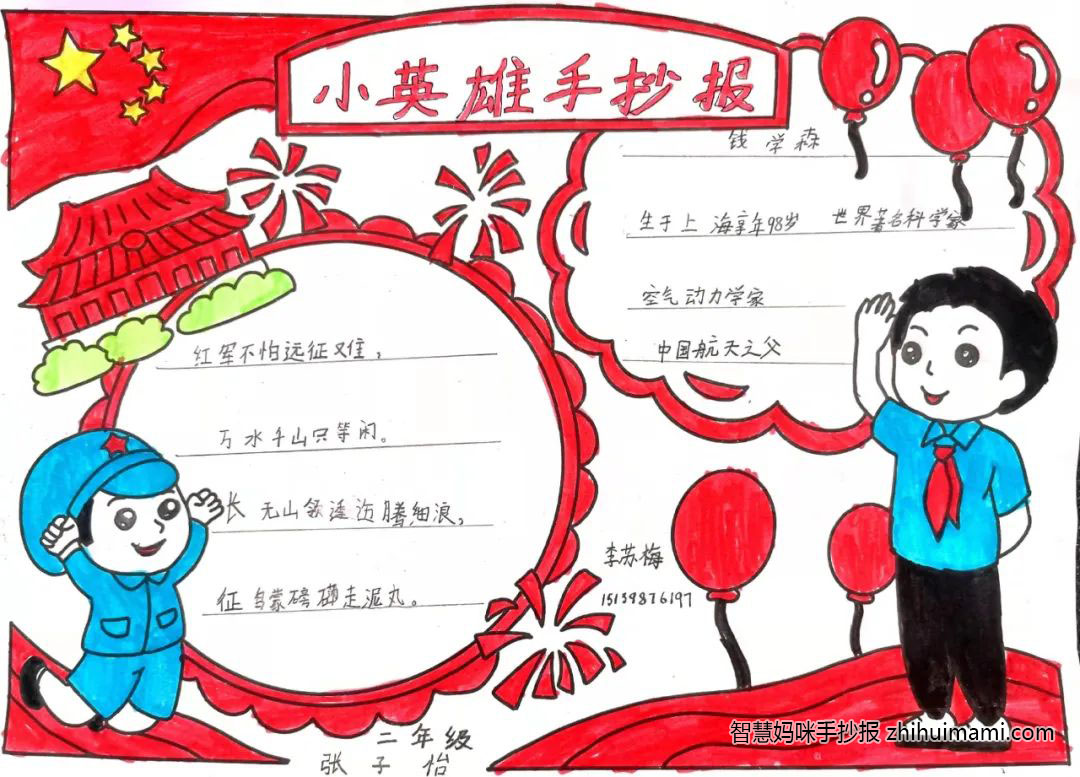 小英雄手抄报
钱学森
生于上海享年98岁 世界著名科学家
空气动力学家
中国航天之父
红军不怕远征难，
万水千山只等闲。
长 无山 腾细浪，
征 乌蒙磅礴走泥丸。
李苏梅
15139876197
二年级
张子怡
智慧妈咪手抄报 zhihuimami.com